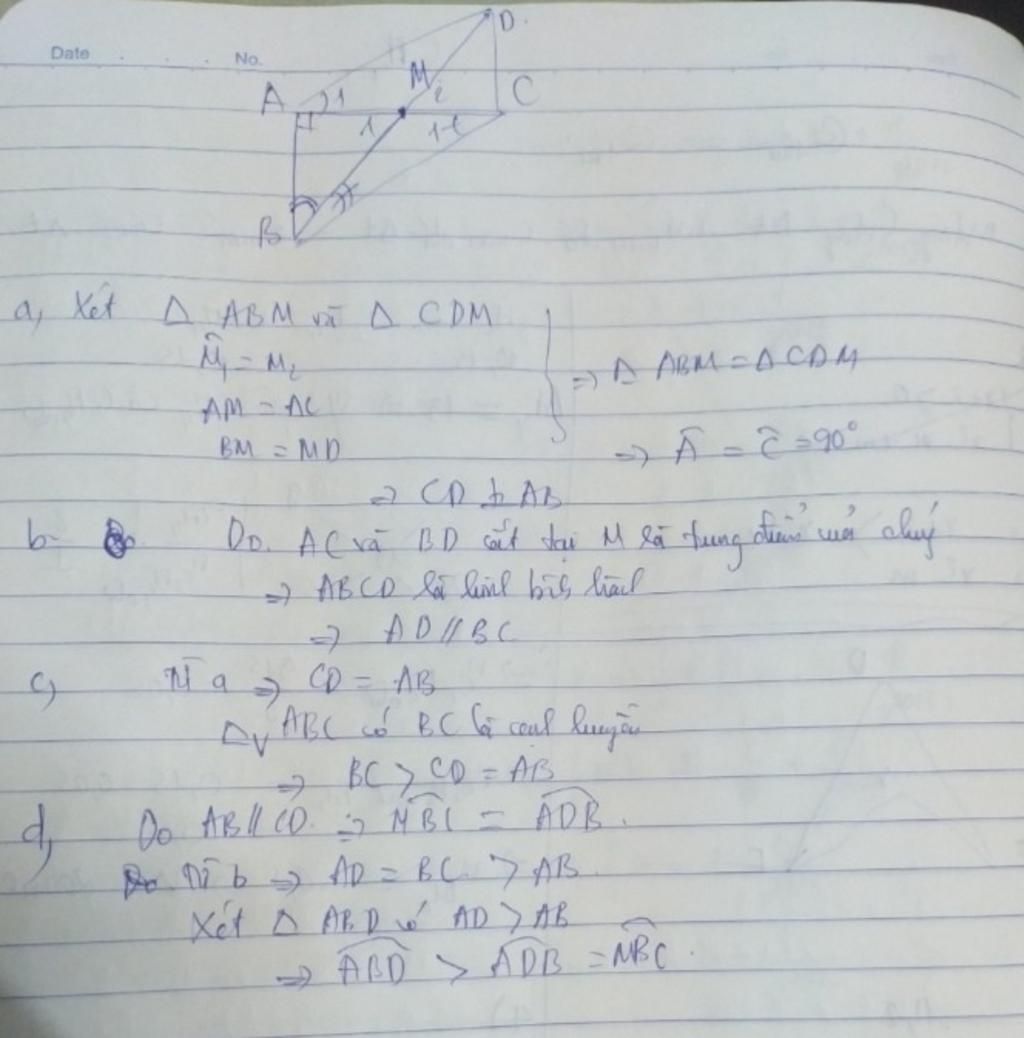 Date No.
D
A 1 M 2 C
1
B
a, Xét Δ ABM và Δ CDM
M̂₁ = M₂
AM = AC
BM = MD
⇒ Δ ABM = Δ CDM
⇒ Â = Ĉ = 90°
⇒ CD ⊥ AB
b- Do. AC và BD cắt tại M là trung điểm mỗi
⇒ ABCD là hình bình hành
⇒ AD // BC
c, Từ a ⇒ CD = AB
Δv ABC có BC là cạnh huyền
⇒ BC > CD = AB
d, Do AB // CD. ⇒ MBC = ADB.
Từ b ⇒ AD = BC > AB
Xét Δ ABD có AD > AB
⇒ ABD > ADB = MBC.